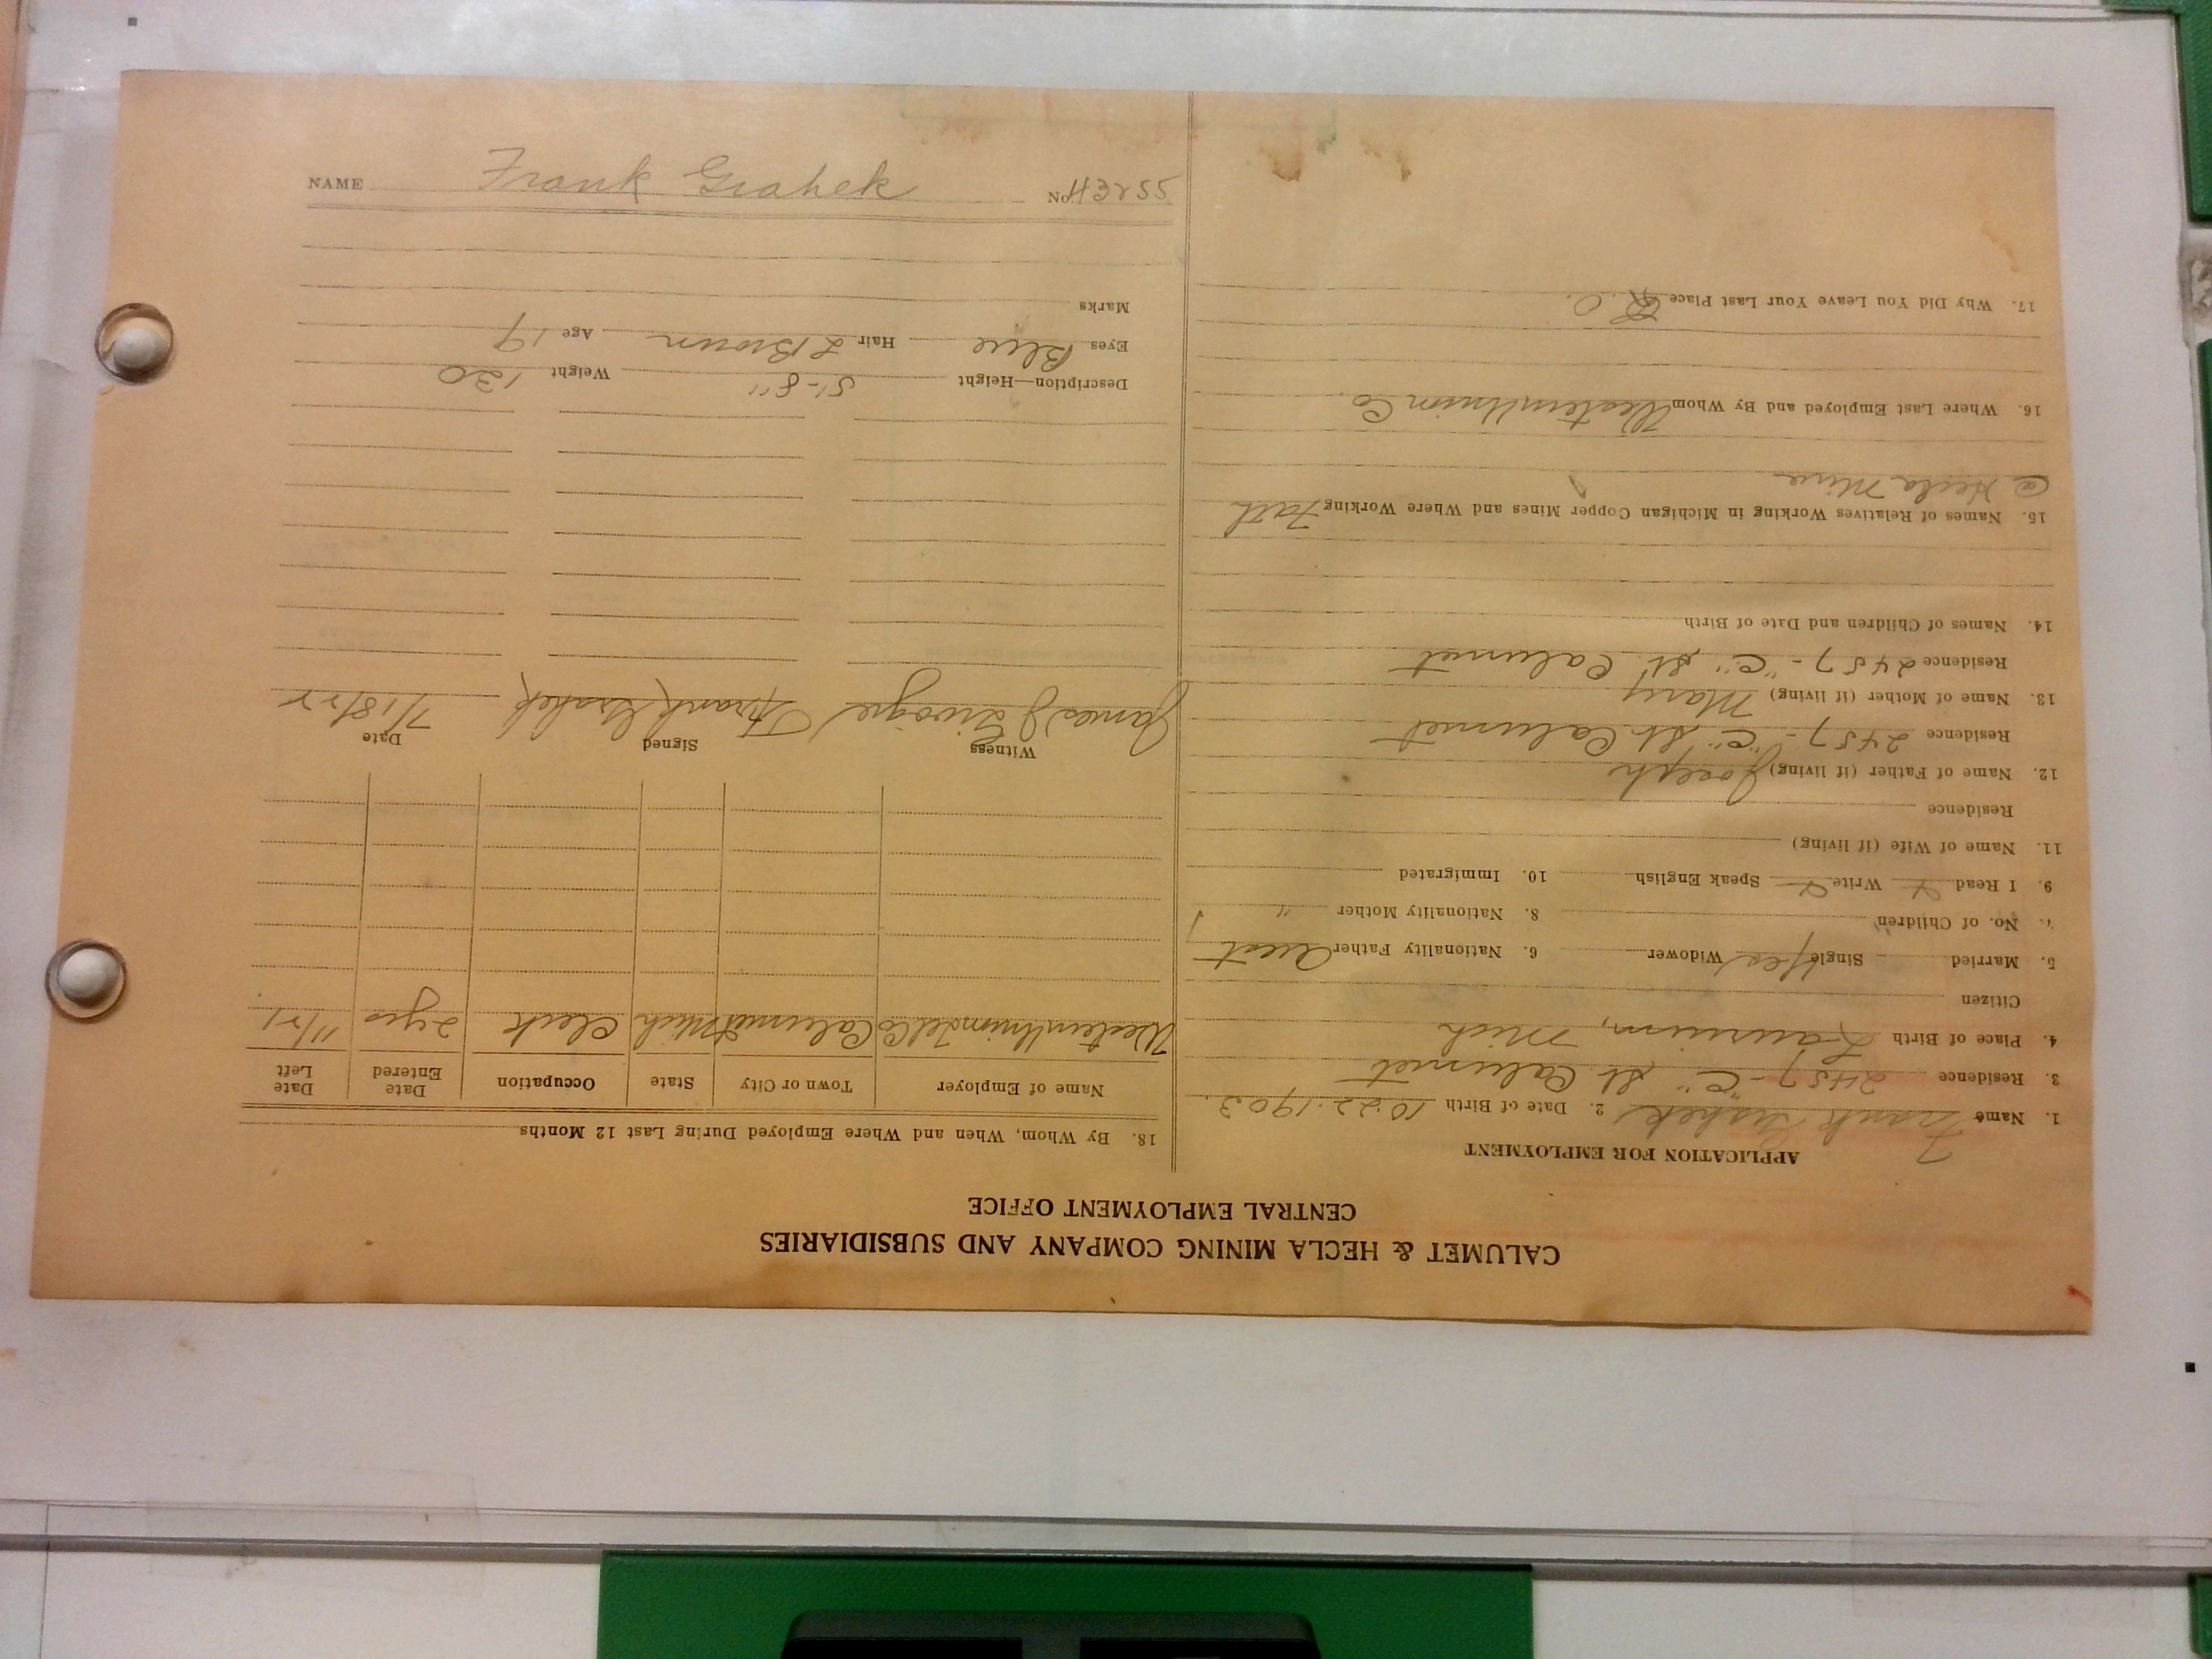 CALUMET & HECLA MINING COMPANY AND SUBSIDIARIES
CENTRAL EMPLOYMENT OFFICE
APPLICATION FOR EMPLOYMENT
1. Name Frank Grahek 2. Date of Birth 10-22-1903.
3. Residence 2457-"C" St. Calumet
4. Place of Birth Laurium, Mich
Citizen
5. Married Single Yes Widower 6. Nationality Father Aust
7. No. of Children 8. Nationality Mother "
9. I Read Write Speak English 10. Immigrated
11. Name of Wife (if living)
Residence
12. Name of Father (if living) Joseph
Residence 2457-"C" St. Calumet
13. Name of Mother (if living) Mary
Residence 2457-"C" St. Calumet
14. Names of Children and Date of Birth
15. Names of Relatives Working in Michigan Copper Mines and Where Working Fath
@ Hecla Mine
16. Where Last Employed and By Whom Western Union Co.
17. Why Did You Leave Your Last Place
18. By Whom, When and Where Employed During Last 12 Months
Name of Employer Town or City State Occupation Date Entered Date Left
Western Union Tel Co Calumet Mich Clerk 2 yrs 11/21
Witness Signed Date
James J Frank Grahek 7/18/22
Description—Height 5'-8" Weight 130
Eyes Blue Hair L Brown Age 19
Marks
NAME Frank Grahek No. 43255